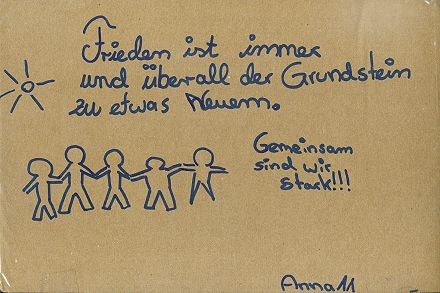 Frieden ist immer
und überall der Grundstein
zu etwas Neuem.
Gemeinsam
sind wir
stark!!!
Anna 11